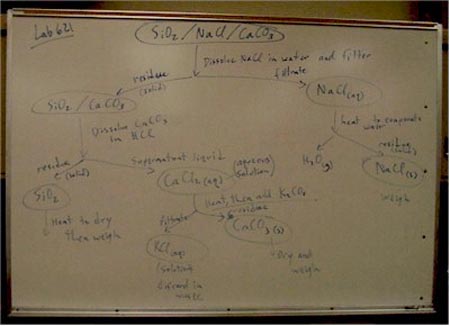 Lab 621
SiO2/NaCl/CaCO3
Dissolve NaCl in water and filter
residue
(solid)
filtrate
SiO2/CaCO3
NaCl(aq)
Dissolve CaCO3
in HCl
heat to evaporate
water
residue
(solid)
supernatant liquid
H2O(g)
residue
(solid)
CaCl2(aq)
(aqueous
solution)
NaCl(s)
SiO2
Heat, then add K2CO3
weigh
Heat to dry
then weigh
filtrate
residue
CaCO3(s)
KCl(aq)
Dry and
weigh
(solution)
discard in
waste